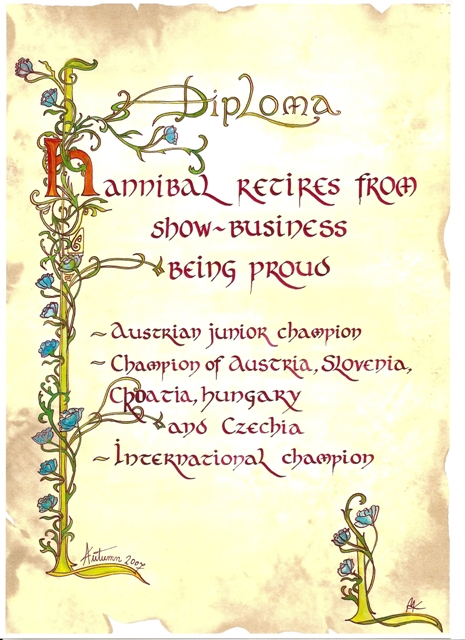 Diploma
Hannibal retires from
show-business
being proud
~ Austrian junior champion
~ Champion of Austria, Slovenia,
Croatia, Hungary
and Czechia
~ International champion
Autumn 2007
AK